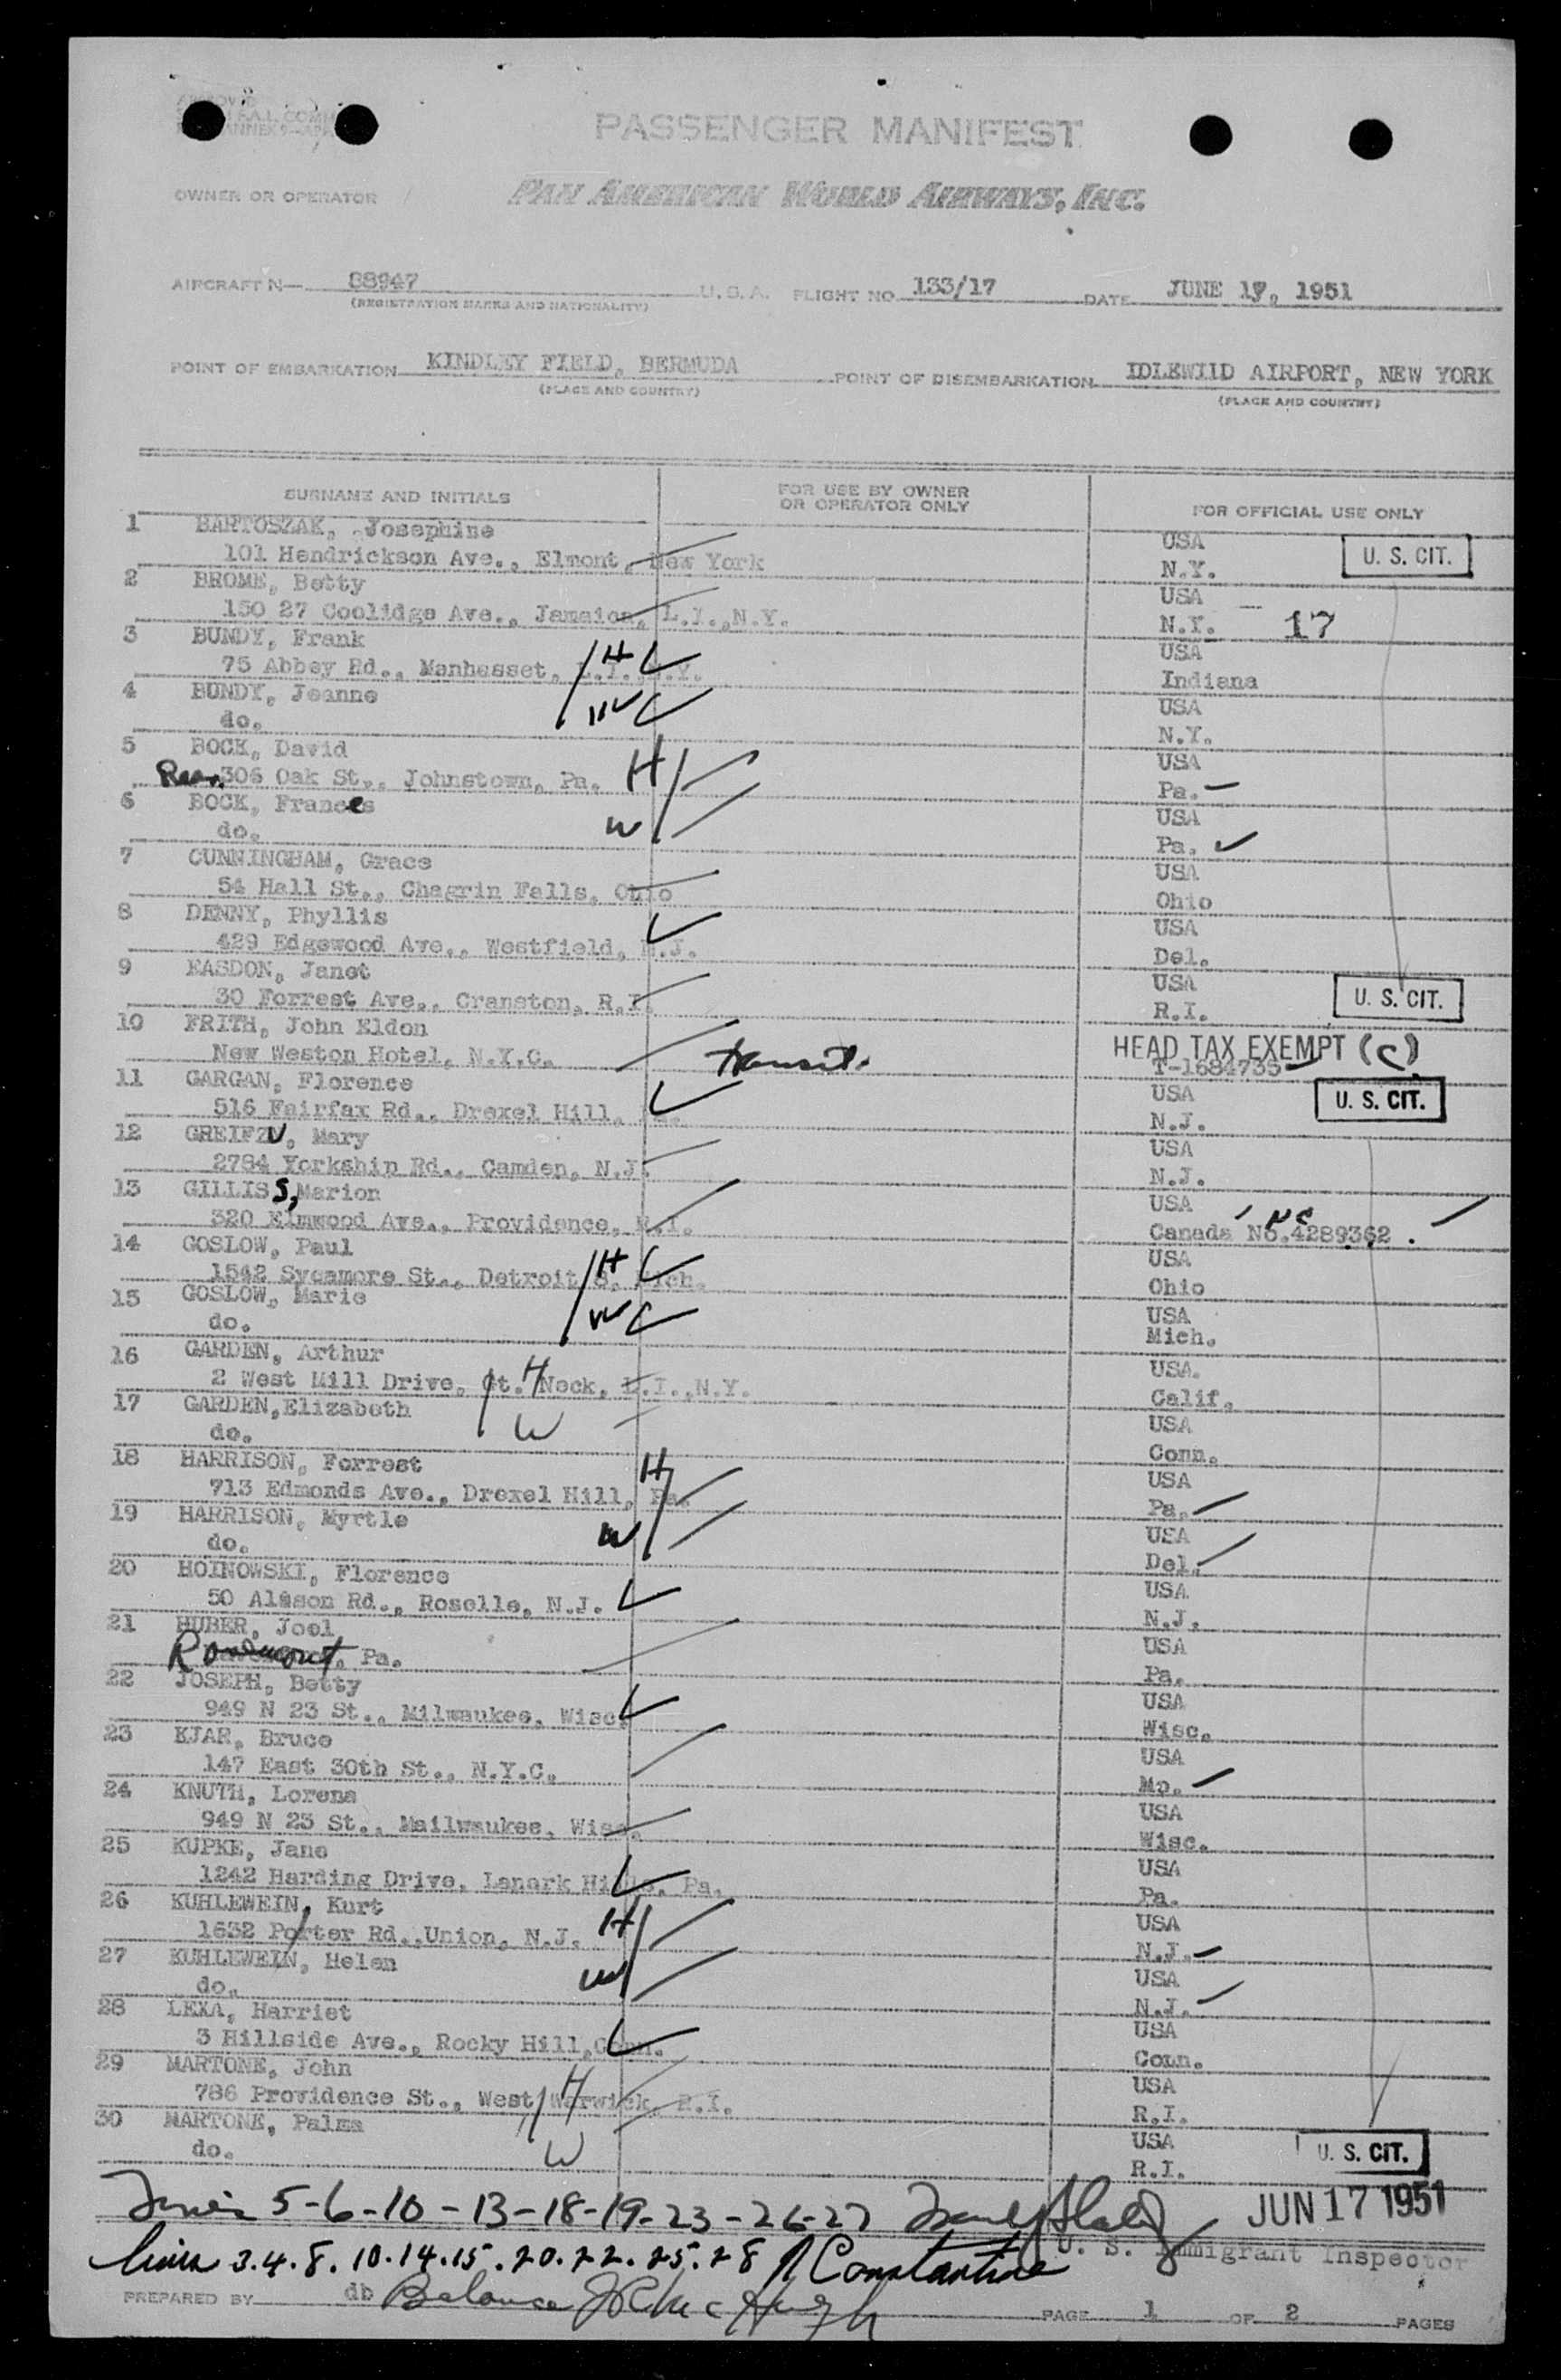 PASSENGER MANIFEST
OWNER OR OPERATOR
PAN AMERICAN WORLD AIRWAYS, INC.
AIRCRAFT N— 88947 U.S.A. FLIGHT NO. 133/17 DATE JUNE 17, 1951
(REGISTRATION MARKS AND NATIONALITY)
POINT OF EMBARKATION KINDLEY FIELD, BERMUDA POINT OF DISEMBARKATION IDLEWIID AIRPORT, NEW YORK
(PLACE AND COUNTRY) (PLACE AND COUNTRY)
SURNAME AND INITIALS FOR USE BY OWNER OR OPERATOR ONLY FOR OFFICIAL USE ONLY
1 BARTOSZAK, Josephine USA
101 Hendrickson Ave., Elmont, New York N.Y. U. S. CIT.
2 BROME, Betty USA
150 27 Coolidge Ave., Jamaica, L.I.,N.Y. N.Y. 17
3 BUNDY, Frank USA
75 Abbey Rd., Manhasset, L.I.,N.Y. H Indiana
4 BUNDY, Jeanne USA
do. W N.Y.
5 BOCK, David USA
Rear 306 Oak St., Johnstown, Pa. H Pa.
6 BOCK, Frances USA
do. W Pa.
7 CUNNINGHAM, Grace USA
54 Hall St., Chagrin Falls, Ohio Ohio
8 DENNY, Phyllis USA
429 Edgewood Ave., Westfield, N.J. Del.
9 EASDON, Janet USA
30 Forrest Ave., Cranston, R.I. R.I. U. S. CIT.
10 FRITH, John Eldon HEAD TAX EXEMPT (C)
New Weston Hotel, N.Y.C. transit. T-1684735
11 GARGAN, Florence USA
516 Fairfax Rd., Drexel Hill, N.J. U. S. CIT.
12 GREIFZU, Mary USA
2784 Yorkship Rd., Camden, N.J. N.J.
13 GILLISS, Marion USA
320 Elmwood Ave., Providence, R.I. Canada NC No.4289362.
14 GOSLOW, Paul USA
1542 Sycamore St., Detroit 8, Mich. H Ohio
15 GOSLOW, Marie USA
do. W Mich.
16 GARDEN, Arthur USA.
2 West Mill Drive, Gt. Neck, L.I.,N.Y. H Calif.
17 GARDEN,Elizabeth USA
do. W Conn.
18 HARRISON, Forrest USA
713 Edmonds Ave., Drexel Hill, Pa. H Pa.
19 HARRISON, Myrtle USA
do. W Del.
20 HOINOWSKI, Florence USA
50 Alason Rd., Roselle, N.J. N.J.
21 HUBER, Joel USA
Rosemont, Pa. Pa.
22 JOSEPH, Betty USA
949 N 23 St., Milwaukee, Wisc. Wisc.
23 KJAR, Bruce USA
147 East 30th St., N.Y.C. Mo.
24 KNUTH, Lorena USA
949 N 23 St., Mailwaukee, Wisc. Wisc.
25 KUPKE, Jane USA
1242 Harding Drive, Lanark Hills, Pa. Pa.
26 KUHLEWEIN, Kurt USA
1632 Porter Rd.,Union, N.J. H N.J.
27 KUHLEWEIN, Helen USA
do. W N.J.
28 LEXA, Harriet USA
3 Hillside Ave., Rocky Hill,Conn. Conn.
29 MARTONE, John USA
786 Providence St., West Warwick, R.I. H R.I.
30 MARTONE, Palma USA
do. W R.I. U. S. CIT.
5-6-10-13-18-19-23-26-27 JUN 17 1951
Lines 3.4.8.10.14.15.20.22.25.28 Constantine U. S. Immigrant Inspector
PREPARED BY db Balance PAGE 1 OF 2 PAGES